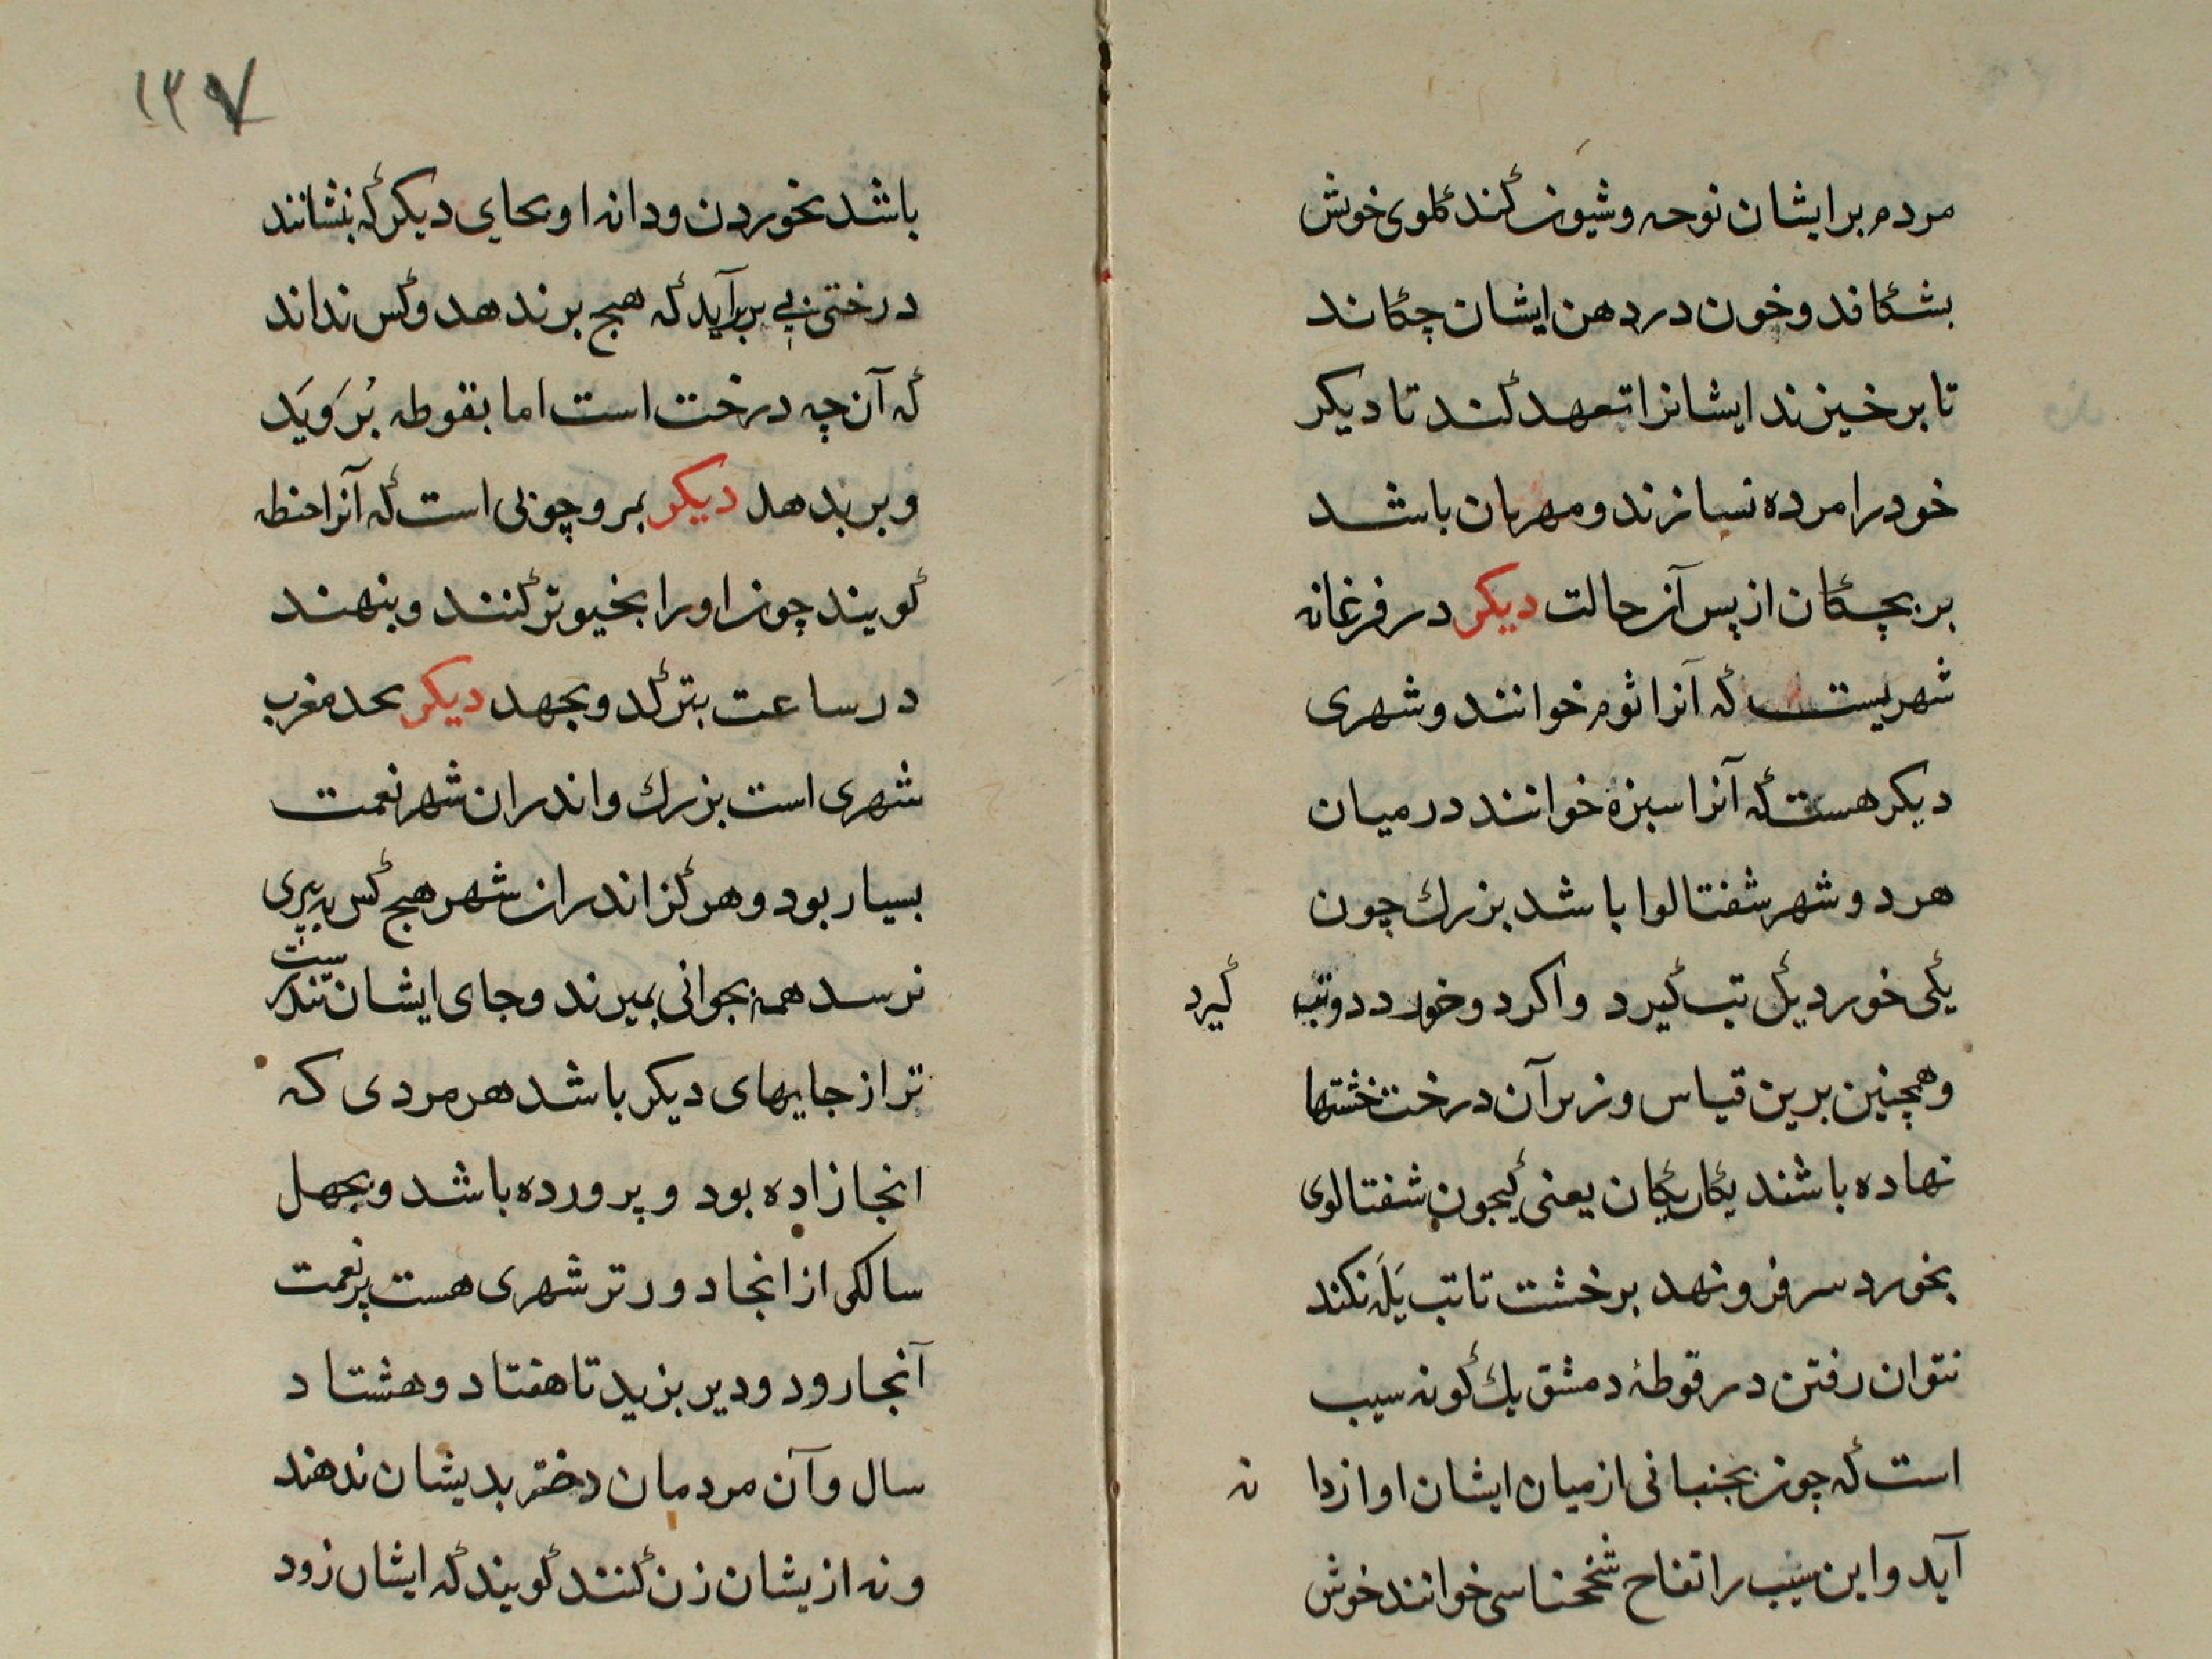 مردم بر ایشان نوحه و شیون کند کلوی خویش
بشکافد و خون در دهن ایشان چکاند
تا برخیزند ایشانرا تعهد کند تا دیکر
خود را مرده نسازند و مهربان باشد
بر بچکان از پس آن حالت دیکر در فرغانه
شهریست که آنرا ثوم خوانند و شهری
دیکر هست که آنرا سبزه خوانند در میان
هر دو شهر شفتالوا باشد بزرك چون
یکی خورد یك تب کیرد و اکر دو خورد دو تب کیرد
و همچنین برین قیاس و زیر آن درخت خشتها
نهاده باشند یکان یکان یعنی که چون شفتالوی
بخورد سر فرو نهد بر خشت تا تب یَله نکند
نتوان رفتن در قوطهٔ دمشق یك کونه سیب
است که چون بجنبانی از میان ایشان اواز دانه
آید و این سیب را تفاح خوانند خوش
۱۳۷
باشد بخوردن و دانه او بجای دیکر که بنشانند
درختی برآید که هیچ بر ندهد و کس نداند
که آن چه درخت است اما بقوطه بُروَیَد
و بر بدهد دیکر بمرو چوبی است که آنرا
کویند چون او را بخیو تر کنند و بنهند
در ساعت بترکد و بجهد دیکر بحد مغرب
شهری است بزرك و اندران شهر نعمت
بسیار بود و هرکز اندران شهر هیچ کس به پیری
نرسد همه بجوانی بمیرند و جای ایشان تندرست
تر از جایهای دیکر باشد هر مردی که
انجا زاده بود و پرورده باشد و بچهل
سالکی از انجا دورتر شهری هست پر نعمت
آنجا رود و دیر بزید تا هفتاد و هشتاد
سال و آن مردمان دختر بدیشان ندهند
و نه از یشان زن کنند کویند که ایشان زود